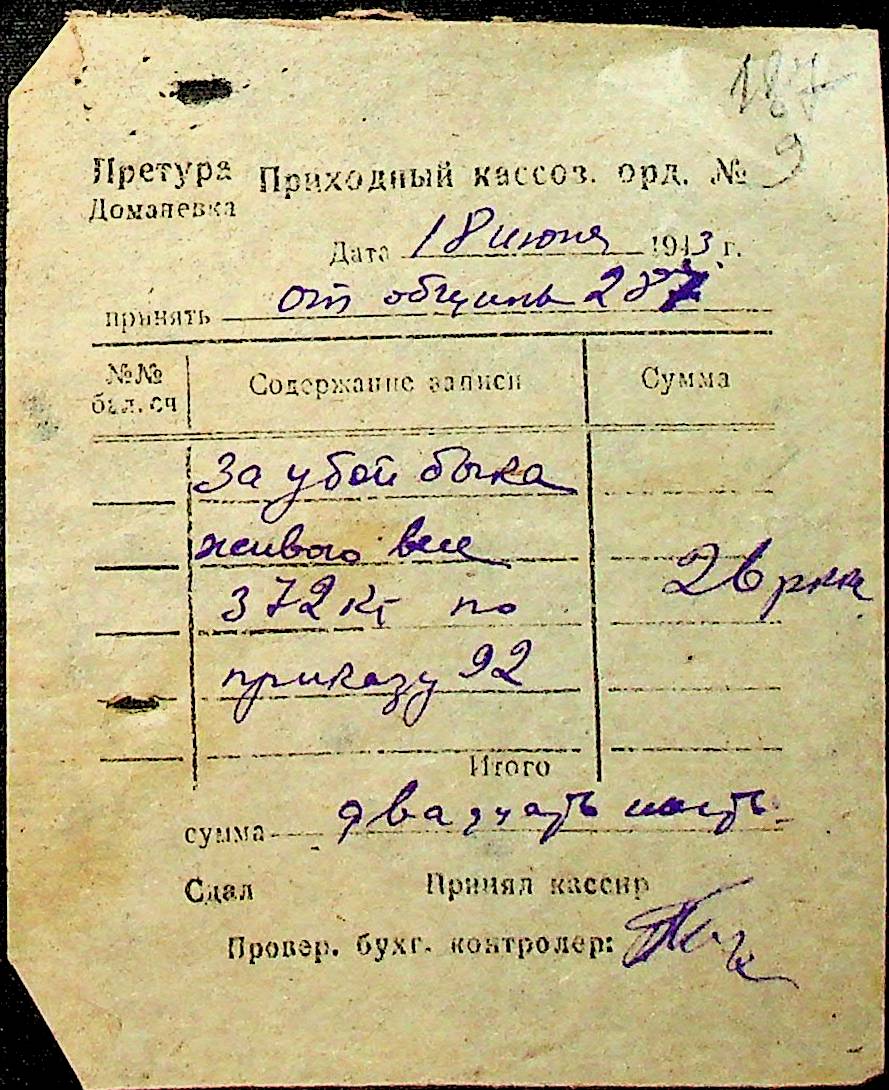 187
Претура Приходный кассоз. орд. № 9
Доманевка
Дата 18 июня 1943 г.
принять от общины 287
№№ бал. сч
Содержание записи
Сумма
За убой быка
живого веса
372 кг по 26 ркк
приказу 92
Итого
сумма двадцать шесть
Сдал Принял кассир
Провер. бухг. контролер: